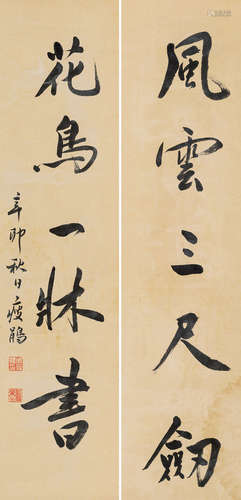 風雲三尺劍
花鳥一牀書
辛卯秋日瘦鵑